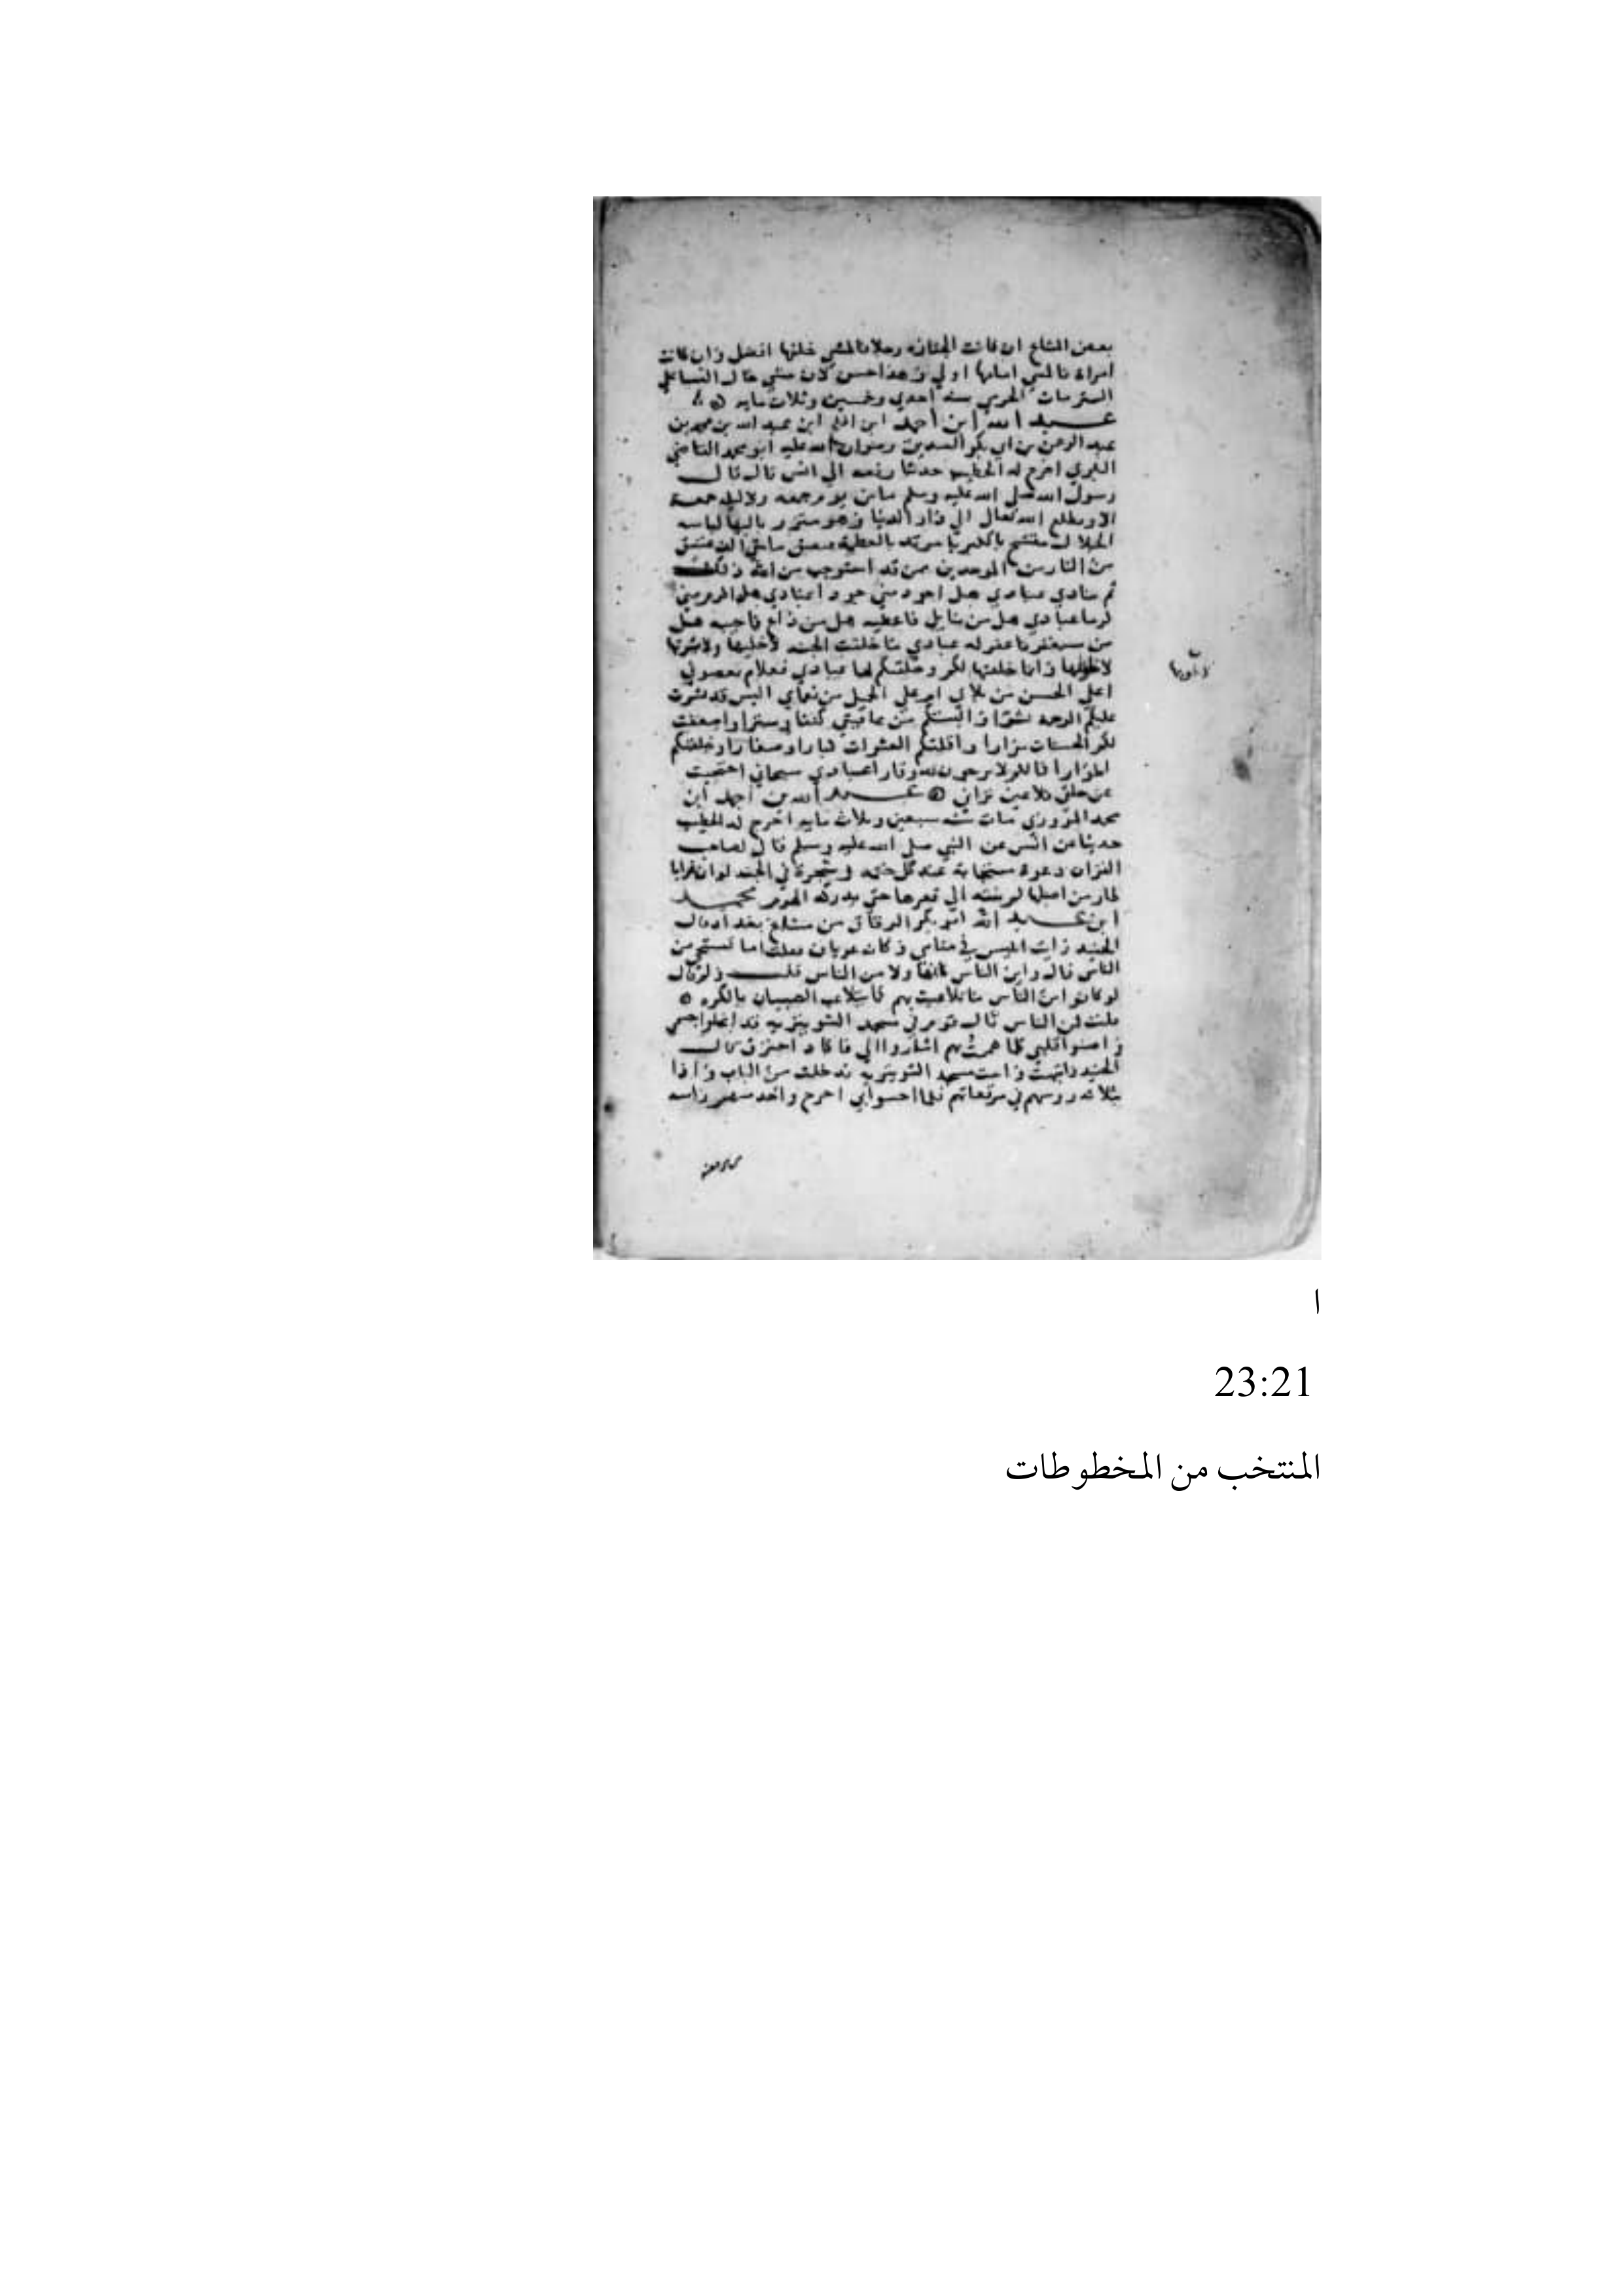 بعض المشايخ ان كانت الجنازه رجلا فالمشي خلفها افضل وان كانت
امراة فالمشي امامها اولي وهذا احسن لان مبني حال النسا علي
الستر مات الحربي سنه احدي وخمسين وثلاث مايه
عبد الله ابن احمد ابن افلح ابن عبد الله بن محمد بن
عبد الرحمن بن ابي بكر الصديق رضوان الله عليه ابو محمد القاضي
البكري اخرج له الخطيب حديثا رفعه الي انس قال قال
رسول الله صلي الله عليه وسلم ما من يوم جمعه ولا ليله جمعة
الا ويطلع الله تعالي الي دار الدنيا وهو متزر بالبها لباسه
الجلال متشح بالكبريا مرتد بالعظمة
من النار من الموحدين ممن قد استوجب من الله ذلك
ثم ينادي عبادي هل اجود مني جودا عبادي هل اكرم مني
كرما عبادي هل من سايل فاعطيه هل من داع فاجيبه هل
من مستغفر فاغفر له عبادي ما خلقت الجنه لاخليها ولا نشرتها
لاطويها وانما خلقتها لكم وخلقتكم لها عبادي فعلام تعصوني
اعلي الحسن من بلاي ام علي الجميل من نعماي اليس قد نشرت
عليكم الرحمه نشرا والبستكم من عافيتي كنفا وسترا واضعفت
لكم الحسنات مرارا واقلتكم العثرات كبارا وصغارا وخلقتكم
اطوارا فما لكم لا ترجون لله وقارا عبادي سبحاني احتجبت
عن خلقي فلا عين تراني عبد الله بن احمد ابن
محمد المروزي مات سنه سبعين وثلاث مايه اخرج له الخطيب
حديثا عن انس عن النبي صلي الله عليه وسلم قال لصاحب
القران دعوة مستجابة عند كل ختمه وشجرة في الجنه لو ان غرابا
طار من اصلها لم ينته الي فرعها حتي يدركه الهرم محمد
ابن عبد الله ابو بكر الدقاق من مشايخ بغداد قال
الجنيد رايت ابليس في منامي وكان عريان فقلت اما تستحي من
الناس قال واين الناس ولا من الناس قلت ولم قال
لو كانوا من الناس ما تلاعبت بهم كما يتلاعب الصبيان بالكره
فقلت من الناس قال قوم في مسجد الشونيزيه قد انحلوا جسمي
واضنوا قلبي كلما هممت بهم اشاروا الي فاكاد احترق قال
الجنيد فانتبهت واتيت مسجد الشونيزيه فدخلت من الباب واذا
بثلاثه رووسهم في مرقعاتهم فلما احسوا بي اخرج واحد منهم راسه
ا
23:21
المنتخب من المخطوطات